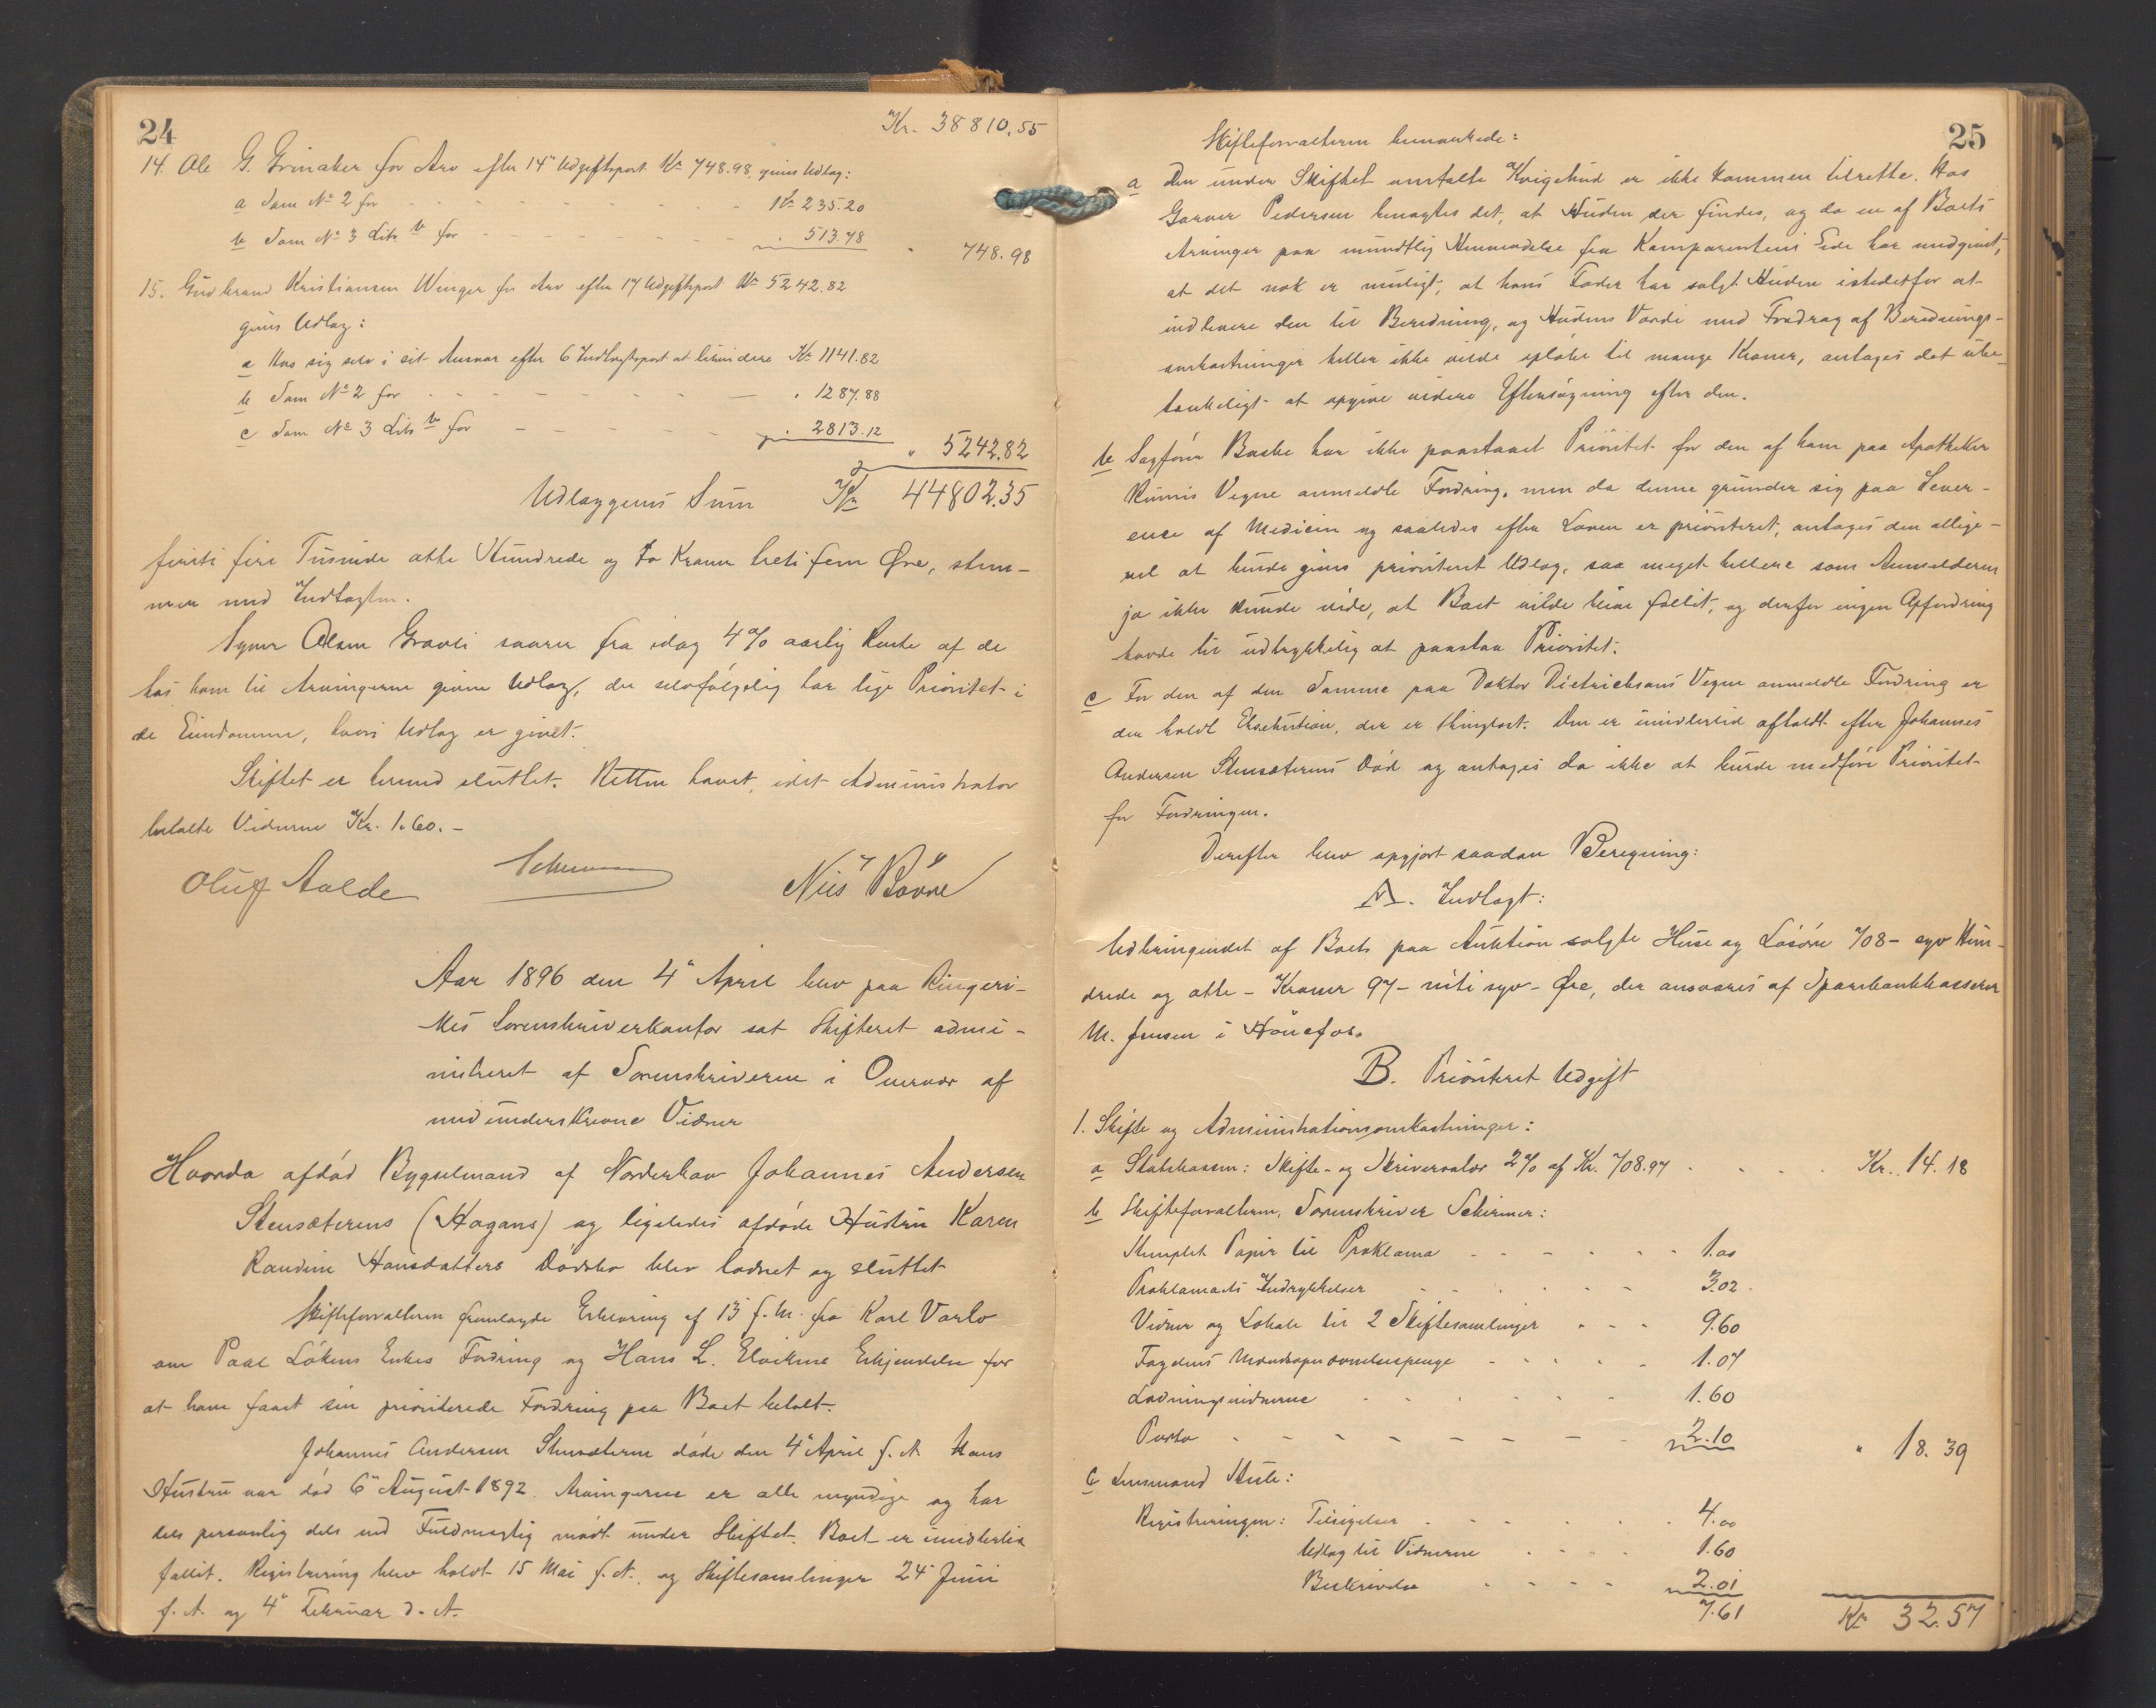 24
Kr. 38810.55
14. Ole G. Grinaker for Arv efter 14de Udgiftspost Kr. 748.98, gives Udlæg:
a Som No 2 for - - - Kr 235.20
b Som No 3 Litr b for - - - " 513.78
" 748.98
15. Gudbrand Kristiansen Winger for Arv efter 17 Udgiftspost Kr 5242.82
gives Udlæg:
a Hos sig selv i sit Ansvar efter 6 Indtægtspost at likvidere Kr 1141.82
b Som No 2 for - - - " 1287.88
c Som No 3 Litr b for - - - " 2813.12
" 5242.82
Udlæggenes Sum Kr 44802.35
firti fire Tusinde otte Hundrede og to Kroner treti fem Øre, stem-
mer med Indtægten.
Syver Olsen Gravli svarer fra idag 4% aarlig Rente af de
hos ham til Arvingerne givne Udlæg, der selvfølgelig har lige Prioritet i
de Eiendomme, hvori Udlæg er givet.
Skiftet er hermed sluttet. Retten hævet, idet Administrator
betalte Vidnerne Kr. 1.60.-
Oluf Aalde Schirmer Nils Bövre
Aar 1896 den 4de April blev paa Ringeri-
kes Sorenskriverkontor sat Skifteret admi-
nistreret af Sorenskriveren i Overvær af
medunderskrevne Vidner
Hvorda afdød Bygselmand af Norderhov Johannes Andersen
Stensæterens (Hagans) og ligeledes afdøde Hustru Karen
Randine Hansdatters Dødsbo blev lodnet og sluttet
Skifteforvalteren fremlagde Erklæring af 13 f. M. fra Karl Varlo
om Paal Løkens Enkes Fordring og Hans L. Elvikens Erkjendelse for
at have faaet sin prioriterede Fordring paa Boet betalt.
Johannes Andersen Stensæteren døde den 4de April f. A. Hans
Hustru var død 6te August 1892. Arvingerne er alle myndige og har
dels personlig dels ved Fuldmægtig mødt under Skiftet. Boet er imidlertid
fallit. Registrering blev holdt 15 Mai f. A. og Skiftesamlinger 24 Juni
f. A. og 4de Februar d. A.
25
Skifteforvalteren bemærkede:
a Den under Skiftet omtalte Kvigehud er ikke kommen tilrette. Hos
Garver Pedersen benægtes det, at Huden der findes, og da en af Boets
Arvinger paa mundtlig Henvendelse fra Komparentens Side har medgivet,
at det nok er muligt, at hans Fader har solgt Huden istedetfor at
indlevere den til Beredning, og Hudens Værdi med Fradrag af Berednings-
omkostninger heller ikke vilde opløbe til mange Kroner, antages det ube-
tænkeligt at opgive videre Eftersøgning efter den.
b Sagfører Bache har ikke paastaaet Prioritet for den af ham paa Apotheker
Vegne anmeldte Fordring, men da denne grunder sig paa Lever-
ence af Medicin og saaledes efter Loven er prioriteret, antages den allige-
vel at kunde gives prioriteret Udlæg, saa meget hellere som Anmelderen
jo ikke kunde vide, at Boet vilde blive fallit, og derfor ingen Opfordring
havde til udtrykkelig at paastaa Prioritet.
c For den af den Samme paa Doktor Dietrichsons Vegne anmeldte Fordring er
der holdt Eksekution, der er thinglæst. Den er imidlertid afholdt efter Johannes
Andersen Stensæterens Død og antages da ikke at kunde medføre Prioritet
for Fordringen.
Derefter blev opgjort saadan Beregning:
A. Indtægt:
Udbringendet af Boets paa Auktion solgte Huse og Løsøre 708- syv Hun-
drede og otte - Kroner 97 - niti syv - Øre, der ansvares af Sparebankkasserer
M. Jensen i Hønefos.
B. Prioriteret Udgift
1. Skifte og Administrationsomkostninger:
a Statskassen: Skifte- og Skriversalær 2% af Kr. 708.97 - - - Kr. 14.18
b Skifteforvalteren, Sorenskriver Schirmer:
Stemplet Papir til Proklama - - - 1.00
Proklamaets Indrykkelser - - - 3.02
Vidner og Lokale til 2 Skiftesamlinger - - - 9.60
Fogdens - - - 1.07
Lodningsvidnerne - - - 1.60
Porto - - - 2.10
" 18.39
c Lensmand Hule:
Registreringen: Tilsigelser - - - 4.00
Udlæg til Vidnerne - - - 1.60
Beskrivelse - - - 2.01
7.61 Kr 32.57